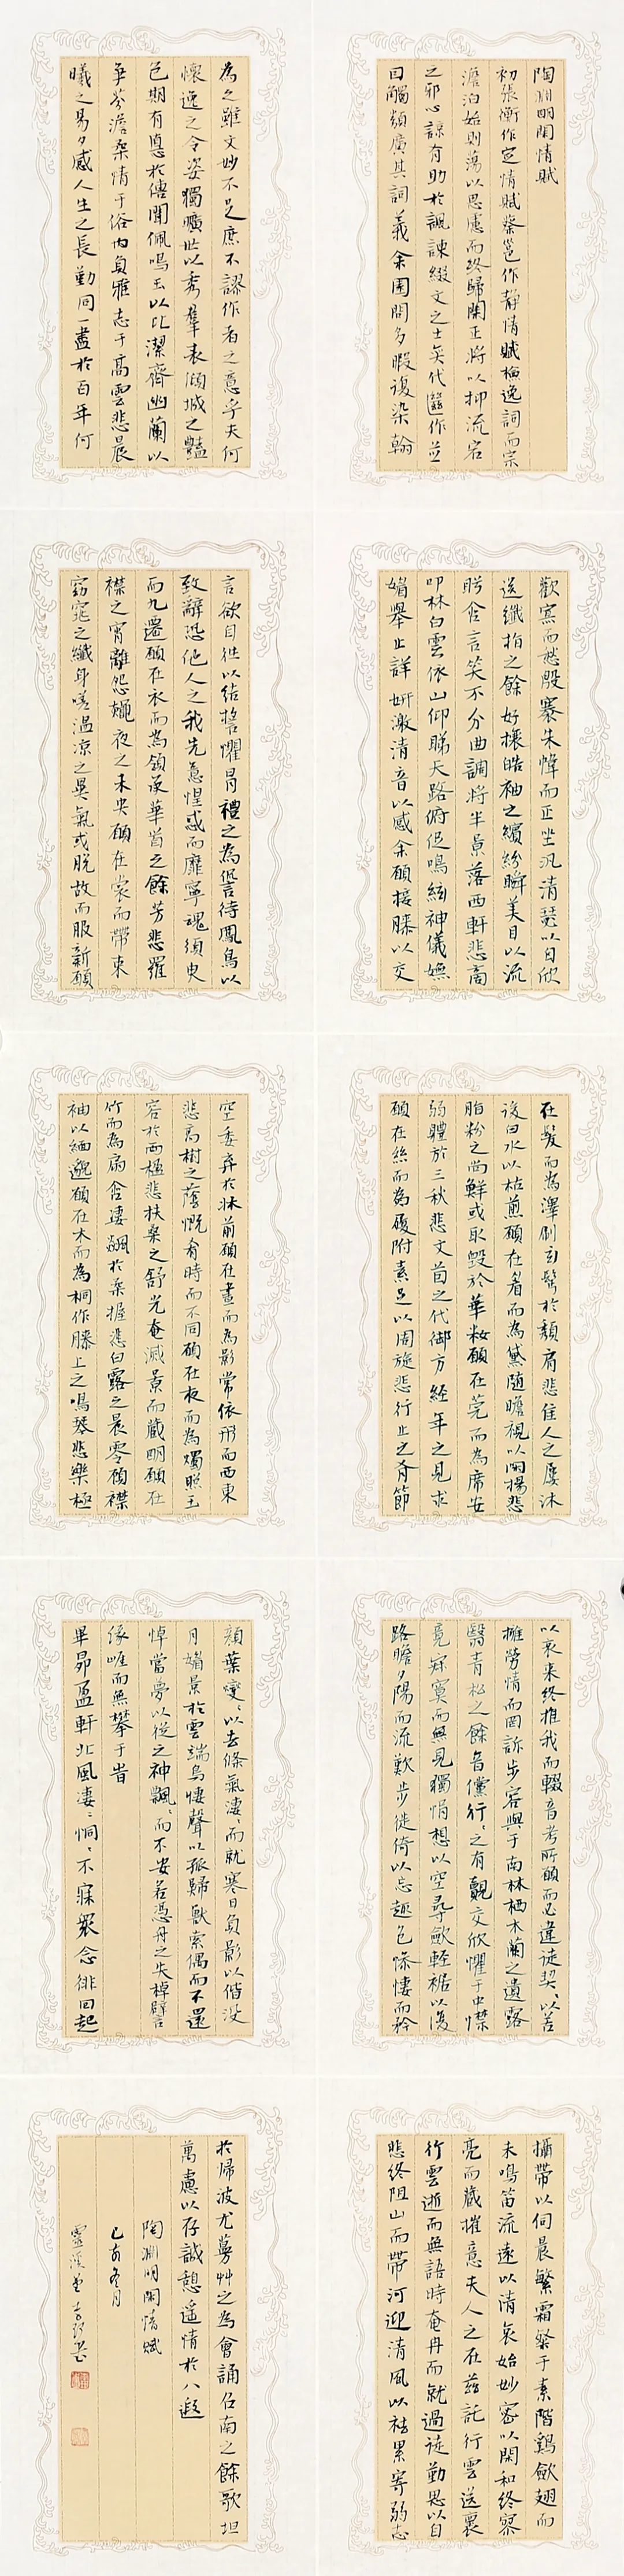 陶淵明閑情賦
初張衡作定情賦蔡邕作静情賦檢逸詞而宗
澹泊始則蕩以思慮而終歸閑正將以抑流宕
之邪心諒有助於諷諫綴文之士奕代繼作並
因觸類廣其詞義余園閭多暇復染翰
為之雖文妙不足庶不謬作者之意乎夫何
懷逸之令姿獨曠世以秀羣表傾城之豔
色期有惪於傳聞佩鳴玉以比潔齊幽蘭以
争芬澹柔情于俗内負雅志于高雲悲晨
曦之易夕感人生之長勤同一盡於百年何
歡寡而愁殷褰朱幃而正坐汎清瑟以自欣
送纖指之餘好攘皓袖之繽紛瞬美目以流
眄含言笑不分曲調將半景落西軒悲商
叩林白雲依山仰睇天路俯促鳴絃神儀嫵
媚舉止詳妍激清音以感余願接膝以交
言欲自往以結誓懼冒禮之為㤿待鳳鳥以
致辭恐他人之我先意惶惑而靡寧魂須臾
而九遷願在衣而為領承華首之餘芳悲羅
襟之宵離怨秋夜之未央願在裳而帶束
窈窕之纖身嗟温凉之異氣或脱故而服新願
在髮而為澤刷玄鬢於頹肩悲佳人之屢沐
從白水以枯煎願在眉而為黛随瞻視以閑揚悲
脂粉之尚鮮或取毀於華粧願在莞而為席安
弱體於三秋悲文茵之代御方經年之見求
願在絲而為履附素足以周旋悲行止之有節
空委弃於牀前願在晝而為影常依形而西東
悲高樹之蔭慨有時而不同願在夜而為燭照玉
容於两楹悲扶桑之舒光奄滅景而藏明願在
竹而為扇含淒飆於柔握悲白露之晨零顧襟
袖以緬邈願在木而為桐作膝上之鳴琴悲樂極
以哀来終推我而輟音考所願而必違徒契契以苦
擁勞情而罔訴步容與于南林栖木蘭之遺露
翳青松之餘音儻行行之有覿交欣懼于中襟
竟寂寞而無見獨悁想以空尋斂輕裾以復
路瞻夕陽而流歎步徙倚以忘趣色慘悽而矜
顔葉變變以去條氣淒淒而就寒日負影以偕没
月媚景於雲端鳥悽聲以孤歸獸索偶而不還
悼當夢以從之神飄飄而不安若憑舟之失棹譬
緣崖而無攀于旹
畢昴盈軒北風淒淒恫恫不寐衆念徘囘起
攝帶以伺晨繁霜粲于素階鷄斂翅而
未鳴笛流遠以清哀始妙密以閑和終寥
亮而藏摧意夫人之在兹託行雲送襄
行雲逝而無語時奄冉而就過徒勤思以自
悲終阻山而帶河迎清風以祛累寄弱志
於歸波尤蔓艸之為會誦召南之餘歌坦
萬慮以存誠憩遥情於八遐
陶淵明閑情賦
己亥冬月